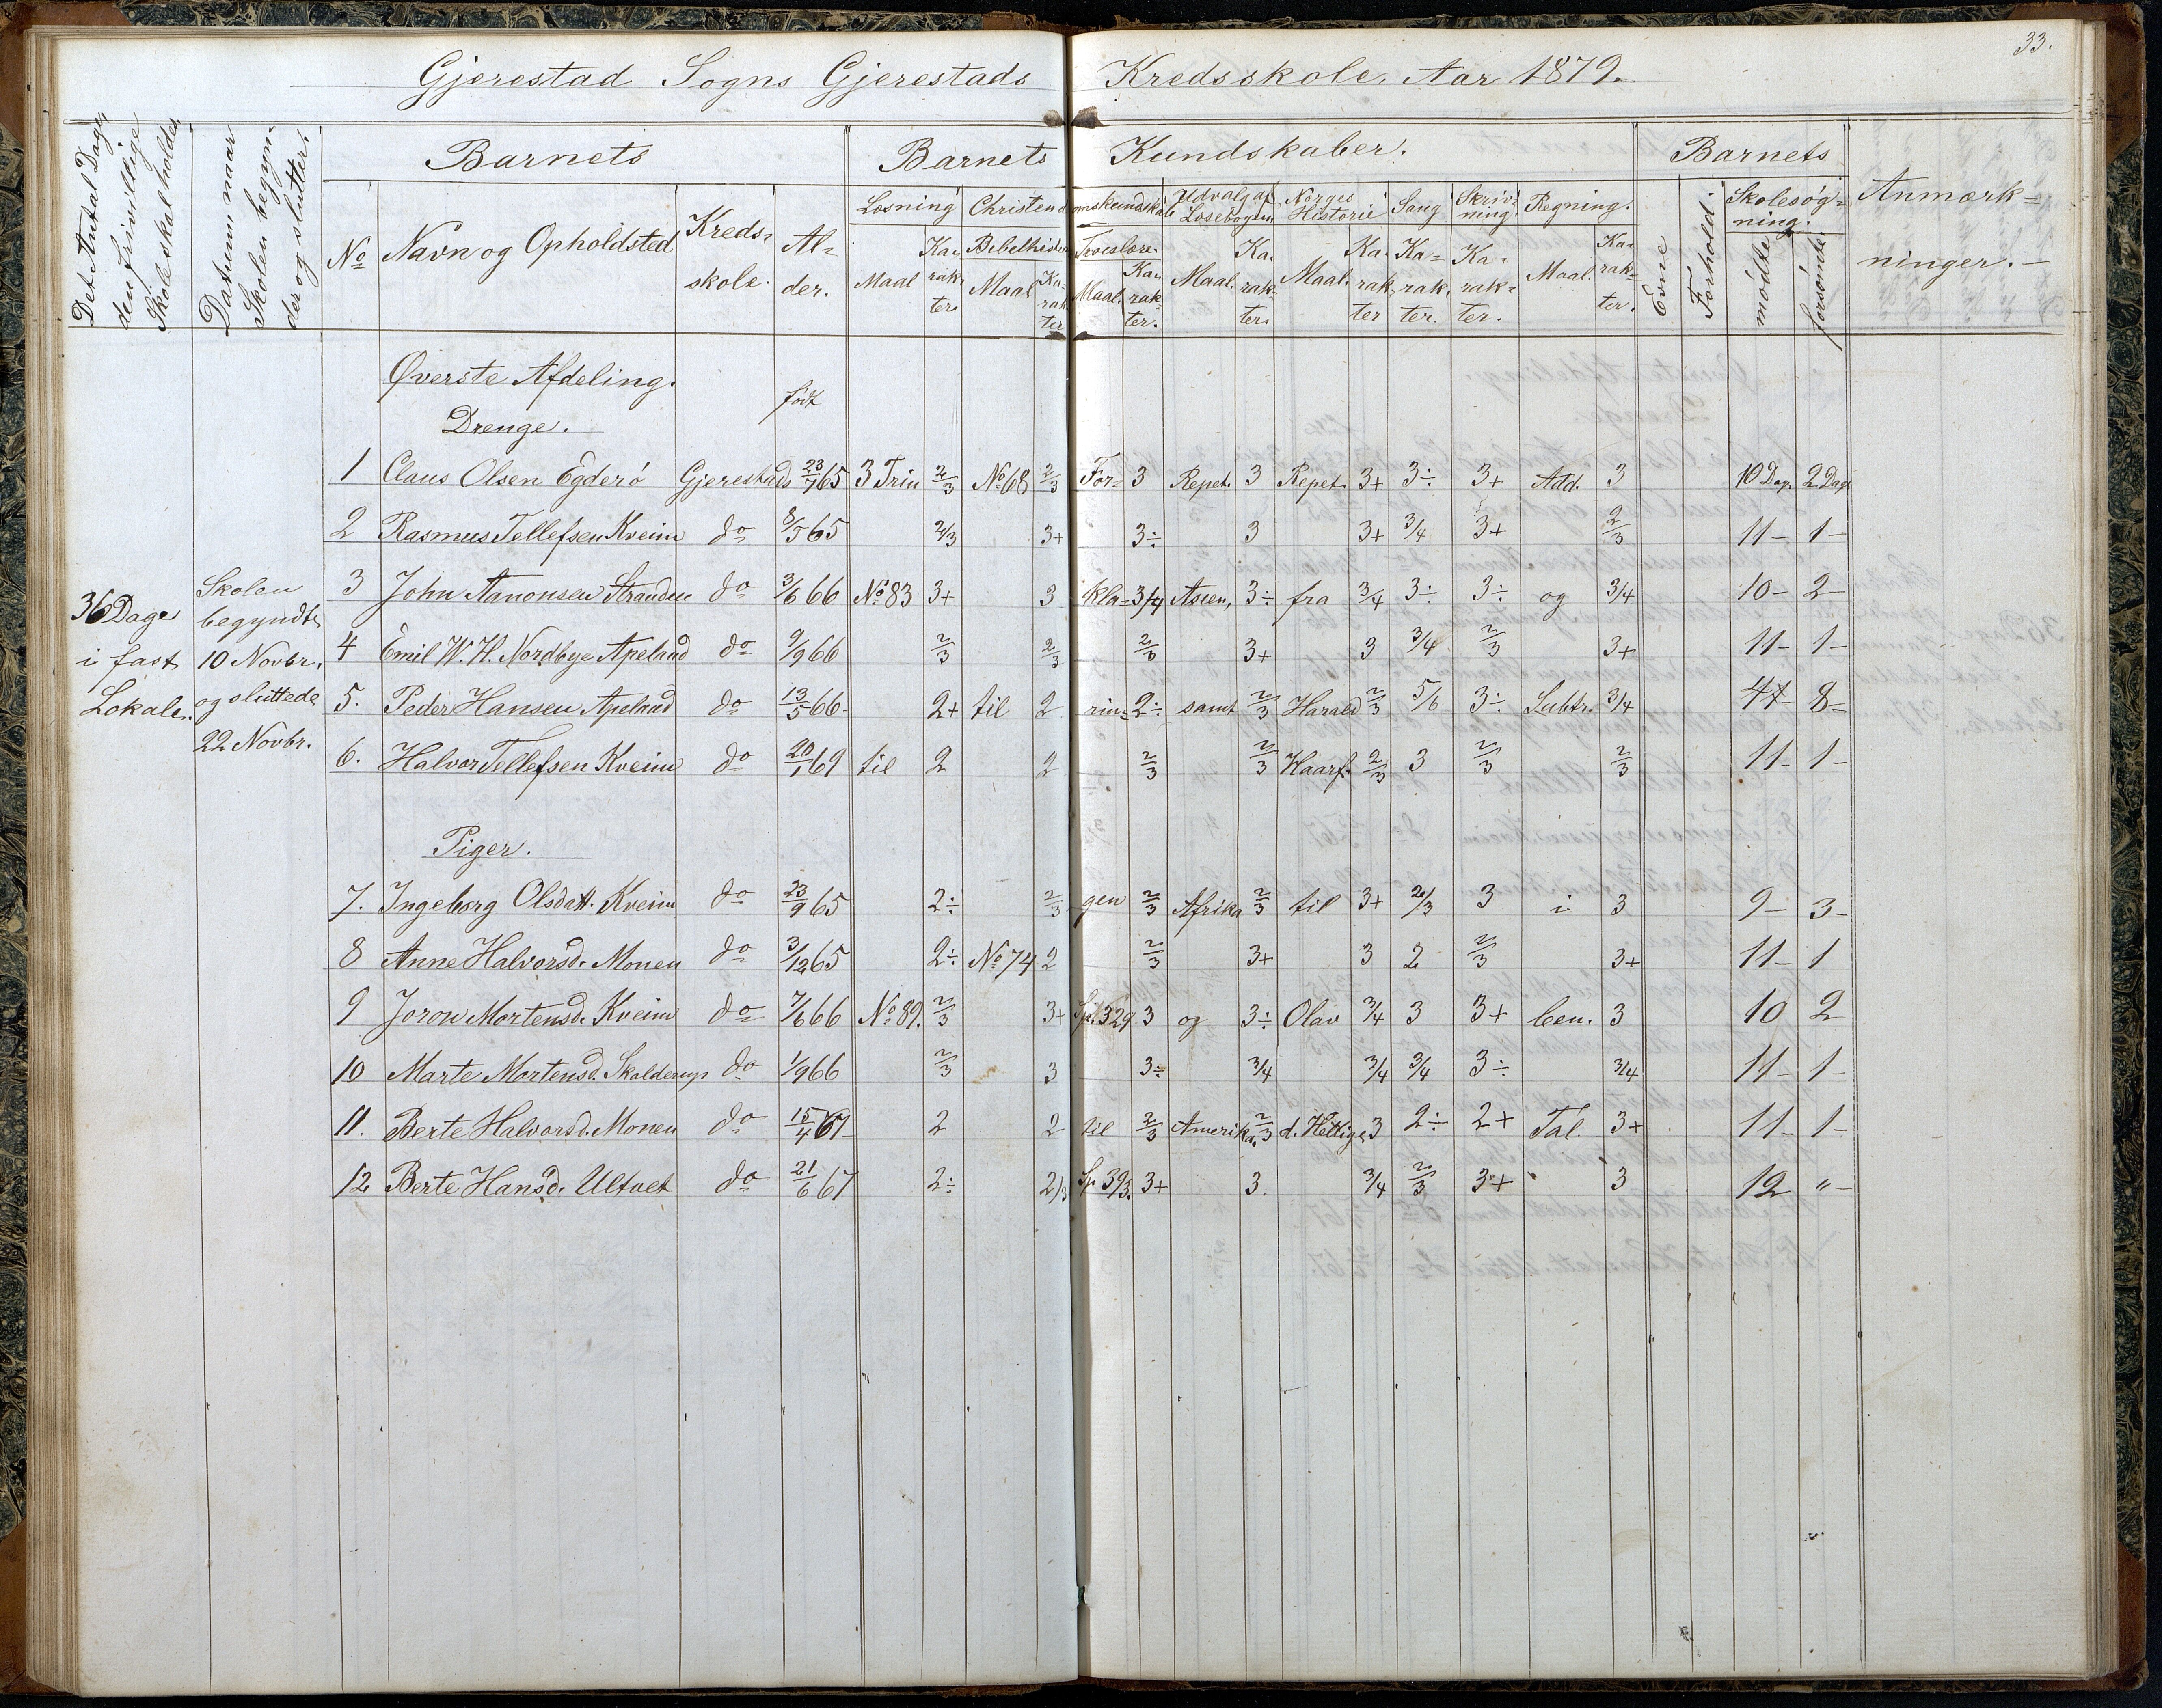 33.
Gjerestad Sogns Gjerestads Kredsskole. Aar 1879.
Det Antal Dage, den frivillige Skole skal holdes.
Datum naar Skolen begynder og slutter.
Barnets
Barnets Kundskaber.
Barnets
Anmærkninger.
No
Navn og Opholdsted
Kredsskole.
Alder.
Læsning
Christendomskundskab
Udvalg af Læsebogen.
Norges Historie
Sang
Skrivning.
Regning.
Evne
Forhold.
Skolesøgning.
Bibelhistorie
Troeslære.
Maal Karakter.
Maal Karakter
Maal. Karakter.
Maal. Karakter.
Maal. Karakter
Karakter.
Karakter.
Maal. Karakter.
mødte
forsømte
Øverste Afdeling.
født
Drenge.
1 Claus Olsen Egderö Gjerestads 23/7 65 3 Trin 2/3 No 68 2/3 For= 3 Repet. 3 Repet. 3+ 3÷ 3+ Add. 3 10 Dag. 2 Dage
2 Rasmus Tellefsen Kveim do 8/5 65 2/3 3+ 3÷ 3 3+ 3/4 3+ 2/3 11 – 1 –
36 Dage i fast Lokale.
Skolen begyndte 10 Novbr. og sluttede 22 Novbr.
3 John Aanonsen Stranden do 3/6 66 No 83 3+ 3 kla= 3/4 Asien, 3÷ fra 3/4 3÷ 3÷ og 3/4 10 – 2 –
4 Emil W. H. Nordbye Apeland do 9/9 66 2/3 2/3 2/3 3+ 3 3/4 2/3 3+ 11 – 1 –
5. Peder Hansen Apeland do 13/5 66. 2+ til 2 rin= 2÷ samt 2/3 Harald 2/3 5/6 3÷ Subtr. 3/4 4 8 –
6. Halvor Tellefsen Kveim do 20/1 69 til 2 2 2/3 2/3 Haarf. 2/3 3 2/3 2/3 11 – 1 –
Piger.
7. Ingeborg Olsdatt. Kveim do 23/9 65 2÷ 2/3 gen 2/3 Afrika 2/3 til 3+ 2/3 3 i 3 9 – 3 –
8 Anne Halvorsd. Monen do 3/12 65 2÷ No 74 2 2/3 3+ 3 2 2/3 3+ 11 – 1
9 Joron Mortensd. Kveim do 7/6 66 No 89. 2/3 3+ Sp. 329 3 og 3÷ Olav 3/4 3 3+ ben. 3 10 2
10 Marte Mortensd. Skalderup do 1/9 66 2/3 3 3÷ 3/4 3/4 3/4 3÷ 3/4 11 – 1 –
11. Berte Halvorsd. Monen do 15/4 67 2 2 til 2/3 Amerika. 2/3 d. Hellige 3 2÷ 2+ Tal. 3+ 11 – 1 –
12 Berte Hansd. Ulfvet do 21/6 67 2÷ 2/3 Sp. 393. 3+ 3. 3/4 2/3 3+ 3 12 " –